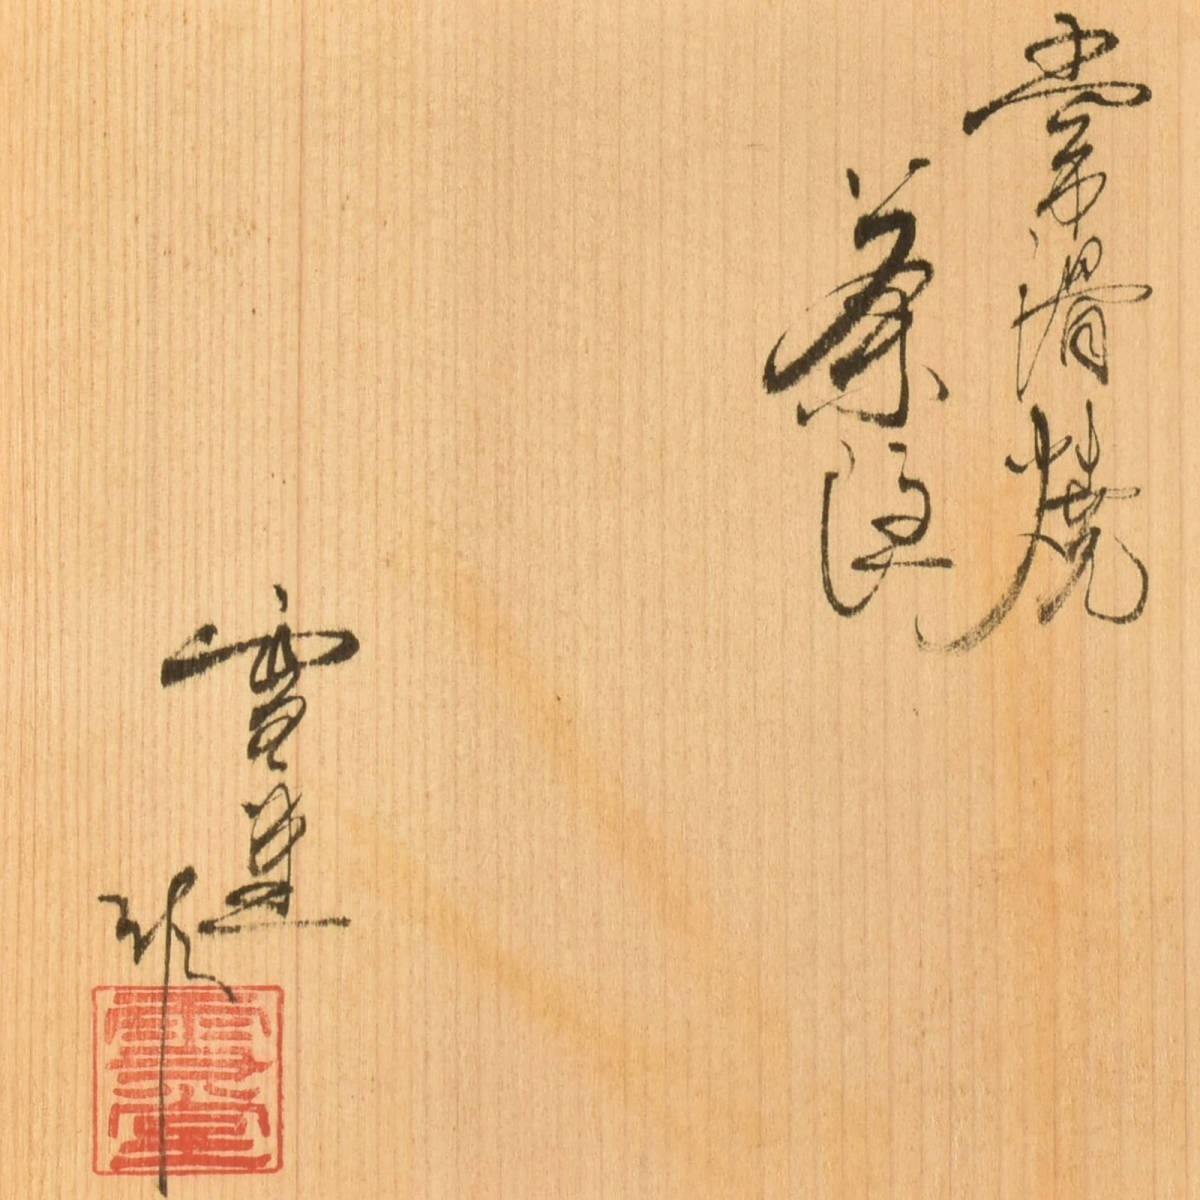 常滑焼
茶注
雪堂
雪堂